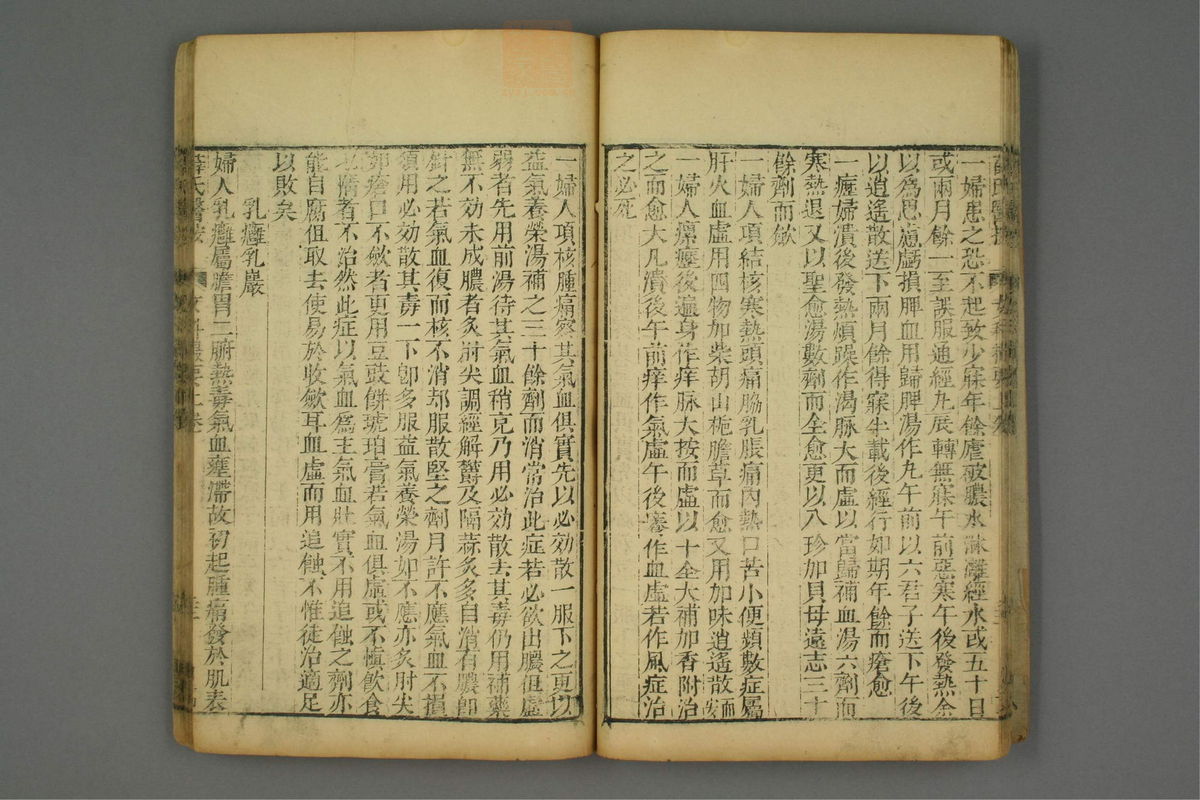 一婦患之恐不起致少寐年餘瘡破膿水淋漓經水或五十日
或兩月餘一至誤服通經丸展轉無寐午前惡寒午後發熱余
以爲思慮虧損脾血用歸脾湯作丸午前以六君子送下午後
以逍遙散送下兩月餘得寐半載後經行如期年餘而瘡愈
一瘧婦潰後發熱煩躁作渴脉大而虛以當歸補血湯六劑而
寒熱退又以聖愈湯數劑而全愈更以八珍加貝母遠志三十
餘劑而斂
一婦人項結核寒熱頭痛脇乳脹痛內熱口苦小便頻數症屬
肝火血虛用四物加柴胡山梔膽草而愈又用加味逍遙散而安
一婦人瘰癧後遍身作痒脉大按而虛以十全大補加香附治
之而愈大凡潰後午前痒作氣虛午後痒作血虛若作風症治
之必死
一婦人項核腫痛察其氣血俱實先以必効散一服下之更以
益氣養榮湯補之三十餘劑而消常治此症若必欲出膿但虛
弱者先用前湯待其氣血稍充乃用必効散去其毒仍用補藥
無不効未成膿者灸肘尖調經解鬱及隔蒜灸多自消有膿即
針之若氣血復而核不消却服散堅之劑月許不應氣血不損
須用必効散其毒一下卽多服益氣養榮湯如不應亦灸肘尖
如瘡口不斂者更用豆豉餅琥珀膏若氣血俱虛或不慎飲食
七情者不治然此症以氣血爲主氣血壯實不用追蝕之劑亦
能自腐但取去使易於收斂耳血虛而用追蝕不惟徒治適足
以敗矣
乳癰乳巖
婦人乳癰屬膽胃二腑熱毒氣血壅滯故初起腫痛發於肌表
薛氏醫按 女科撮要上卷